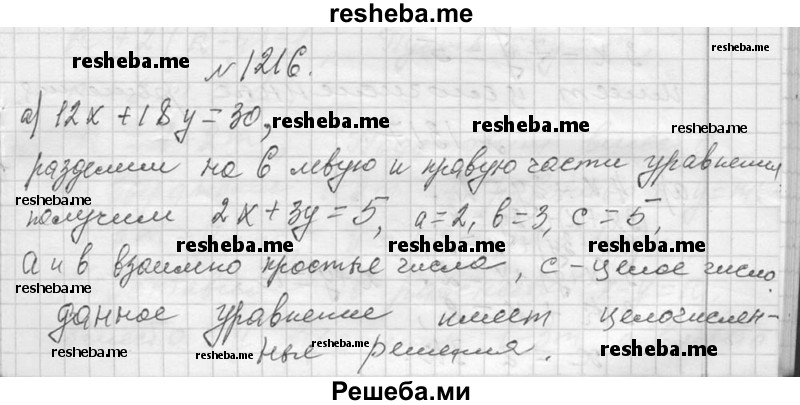 resheba.me
resheba.me
№1216.
resheba.me
а) 12x + 18y = 30, resheba.me
разделим на 6 левую и правую части уравнения
resheba.me
получим 2x + 3y = 5, a = 2, b = 3, c = 5,
resheba.me resheba.me
a и b взаимно простые числа, c - целое число.
resheba.me
данное уравнение имеет целочислен-
resheba.me resheba.me resheba.me resheba.me
ные решения.
Решеба.ми